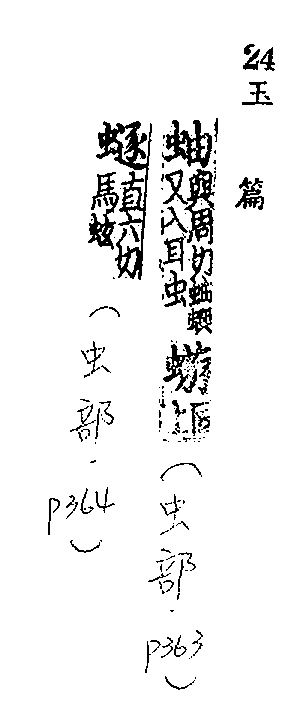 24
玉篇
蚰與周切蚰蜒又入耳虫蝣同上(虫部.p363)
蝫直六切馬蚿(虫部.p364)